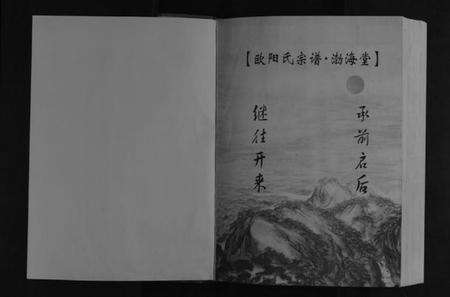 【欧阳氏宗谱·渤海堂】
承前启后
继往开来